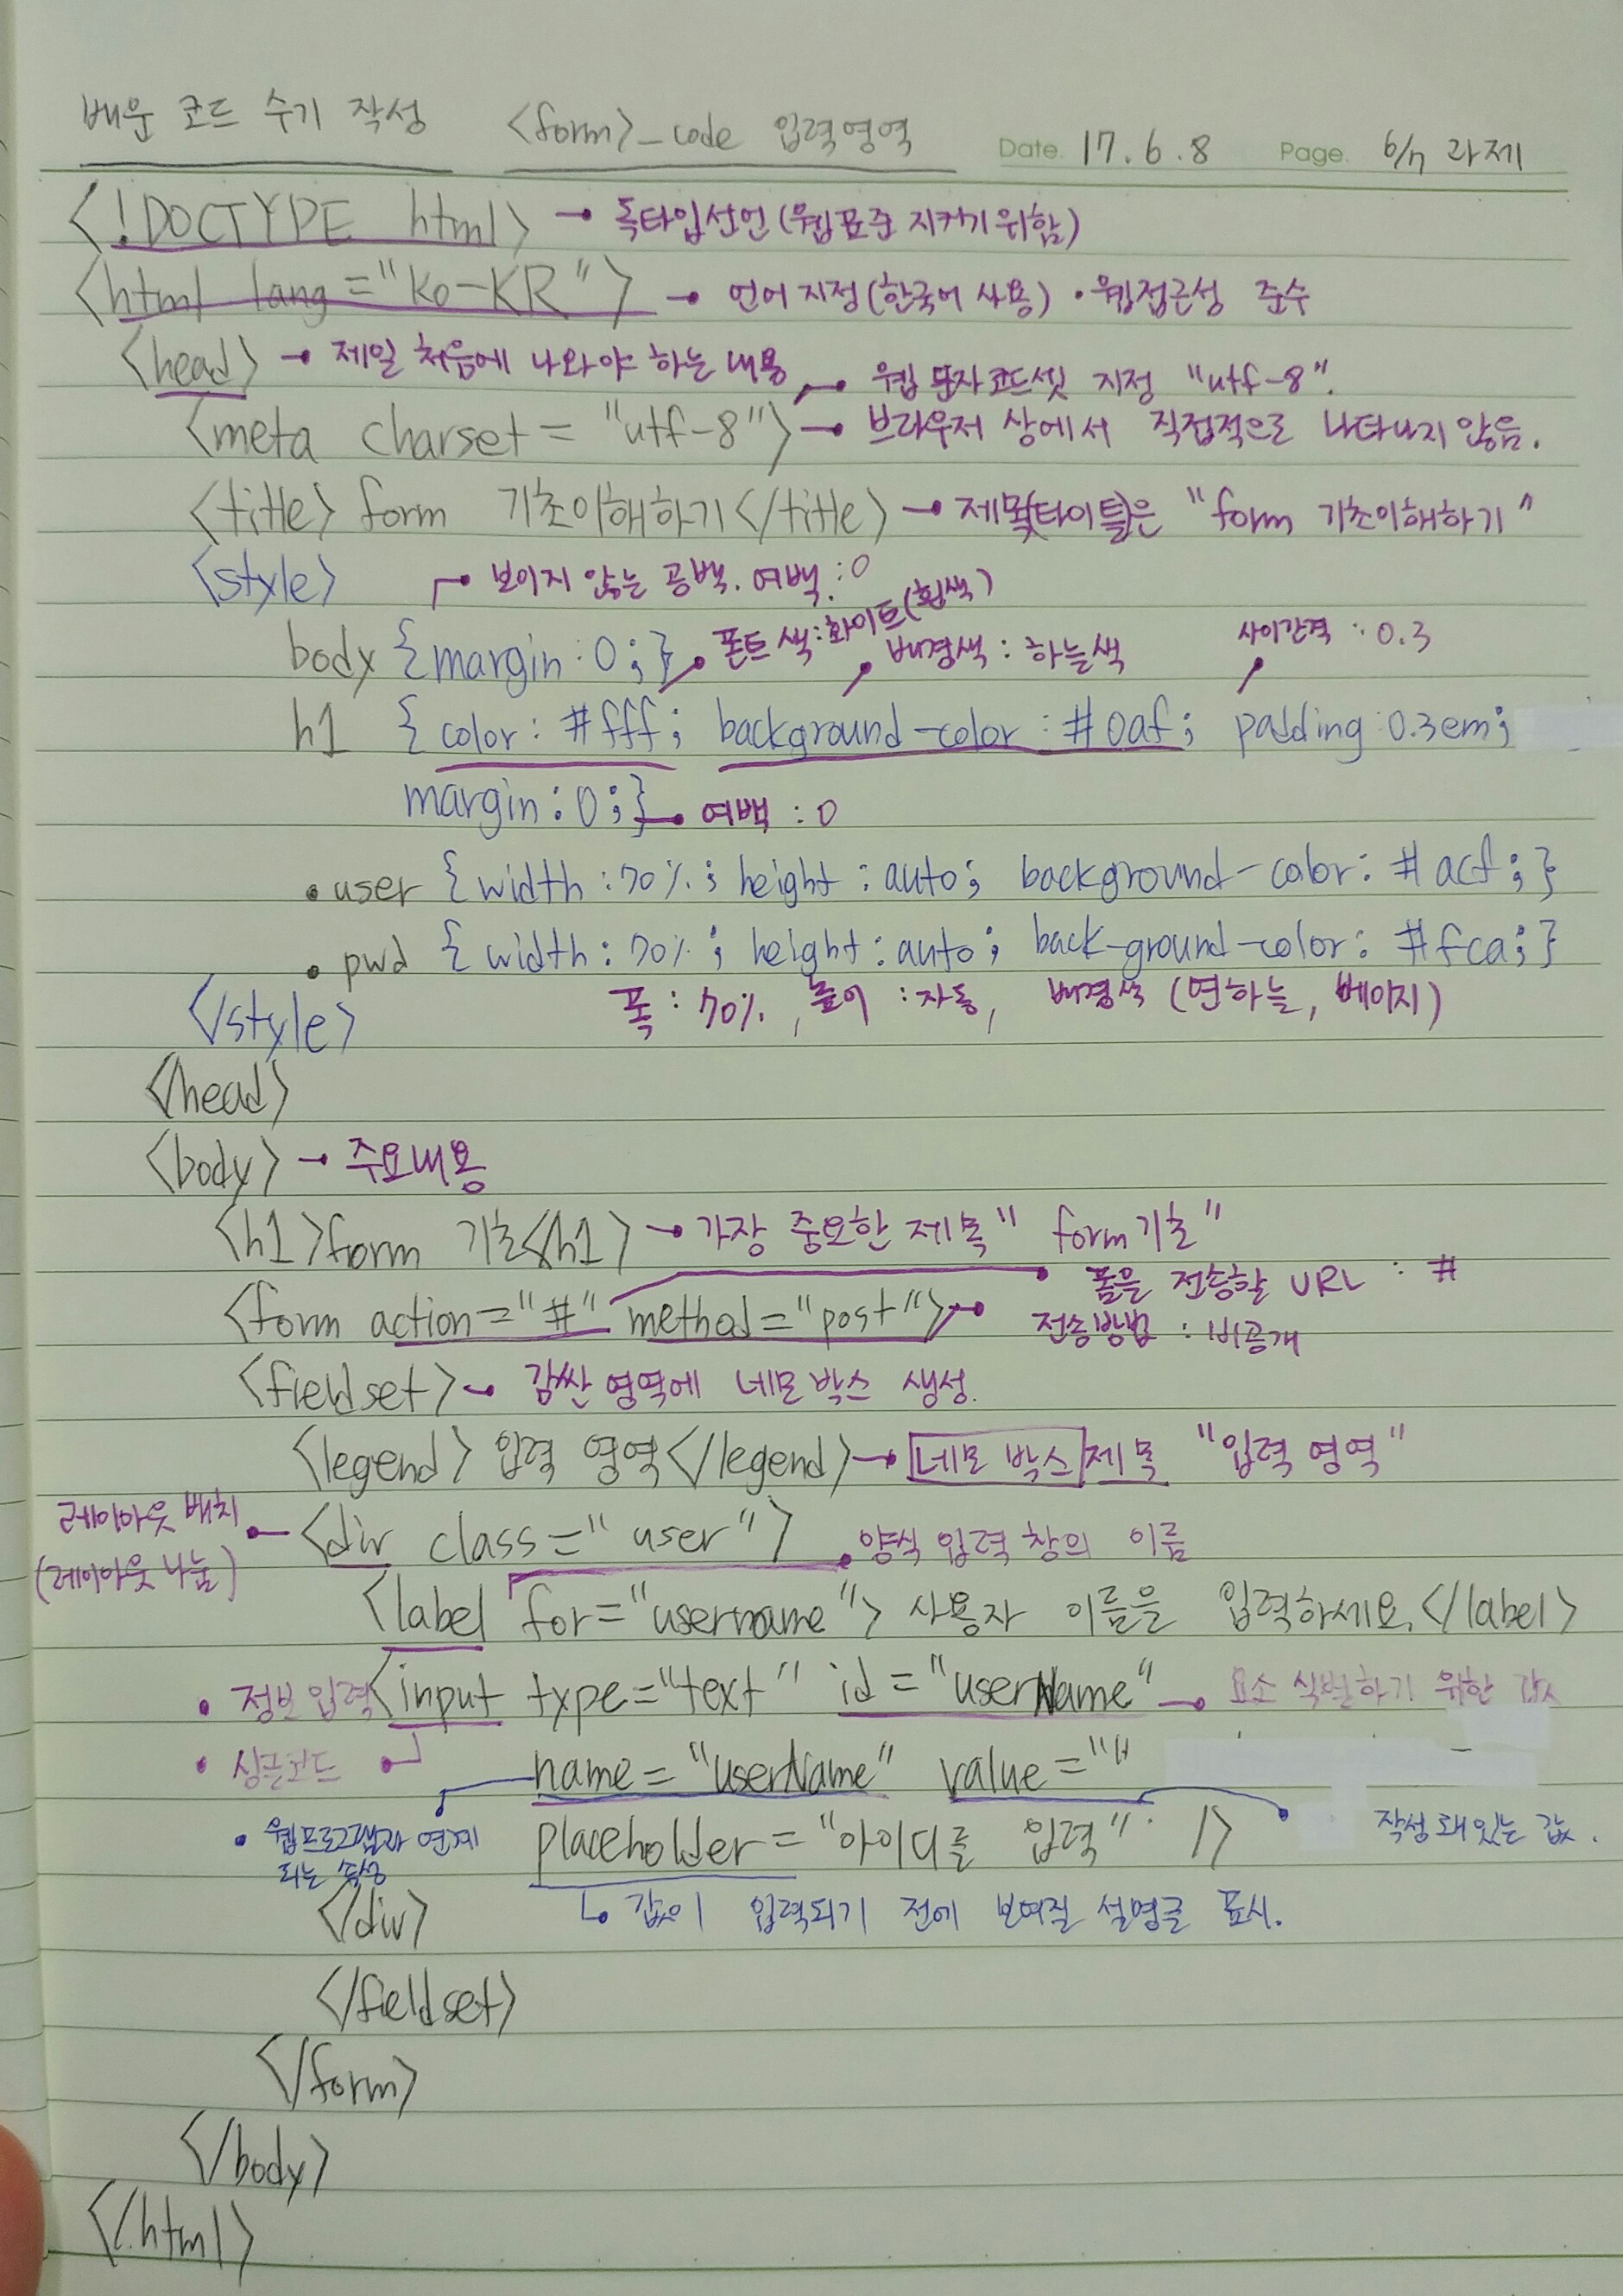 배운 코드 수기 작성 <form>_code 입력영역 Date. 17.6.8 Page. 6/7 과제
<!DOCTYPE html> → 독타입선언(웹표준 지키기위함)
<html lang="ko-KR"> → 언어지정(한국어 사용)·웹접근성 준수
<head> → 제일 처음에 나와야 하는 내용
웹 문자코드셋 지정 "utf-8".
<meta charset="utf-8"> → 브라우저 상에서 직접적으로 나타나지 않음.
<title>form 기초이해하기</title> → 제목(타이틀)은 "form 기초이해하기"
<style> 보이지 않는 공백. 여백:0
폰트색:화이트(흰색) 배경색:하늘색 사이간격:0.3
body {margin:0;}
h1 {color:#fff; background-color:#0af; padding:0.3em;
margin:0;} 여백:0
.user {width:70%; height:auto; background-color:#acf;}
.pwd {width:70%; height:auto; back-ground-color:#fca;}
폭:70%, 높이:자동, 배경색(연하늘, 베이지)
</style>
</head>
<body> → 주요내용
<h1>form 기초</h1> → 가장 중요한 제목 "form기초"
폼을 전송할 URL : #
<form action="#" method="post"> 전송방법 : 비공개
<fieldset> → 감싼 영역에 네모박스 생성.
<legend>입력 영역</legend> → 네모 박스 제목 "입력 영역"
레이아웃 배치
(레이아웃 나눔)
<div class="user"> 양식 입력 창의 이름
<label for="username">사용자 이름을 입력하세요.</label>
• 정보입력 <input type="text" id="userName" → 요소 식별하기 위한 값
• 싱글코드 name="userName" value=""
• 웹프로그램과 연계
되는 속성
placeholder="아이디를 입력" /> 작성돼있는 값.
</div> ↳ 값이 입력되기 전에 보여질 설명글 표시.
</fieldset>
</form>
</body>
</html>